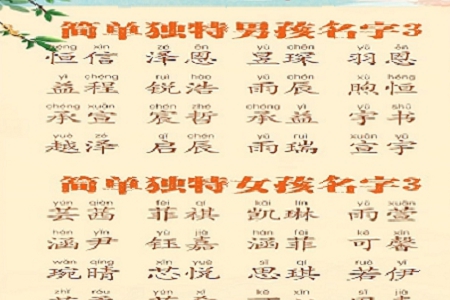 简单独特男孩名字3
héng xìn zé ēn yù chēn yǔ ēn
恒信 泽恩 昱琛 羽恩
yì chéng ruì hào yǔ chén xù héng
益程 锐浩 雨辰 煦恒
chéng xuān chén zhé chéng yì yǔ shū
承宣 宸哲 承益 宇书
yuè zé qǐ chén yǔ ruì xuān yǔ
越泽 启辰 雨瑞 宣宇
简单独特女孩名字3
yún qiàn fēi qí kǎi lín yǔ xuān
芸茜 菲祺 凯琳 雨萱
hán yǐn yù jiā hán fēi kě xīn
涵尹 钰嘉 涵菲 可馨
wǎn qíng xīn yuè sī qí ruò yī
琬晴 芯悦 思琪 若伊